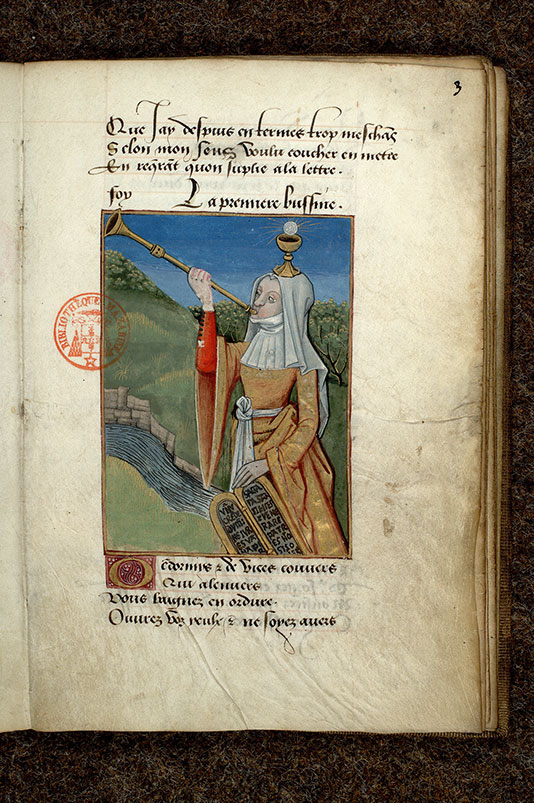 3
Que Jay despius en termes trop meschãs
Selon mon sens voulu coucher en metre
En reqrant quon suplie a la lettre .
foy La premiere bussine .
BIBLIOTHEQUE MAZARINE
O Edormis & de vices couvers
Qui alenvers
Vous baignez en ordure .
Ouvrez voz yeulx & ne soyez avers